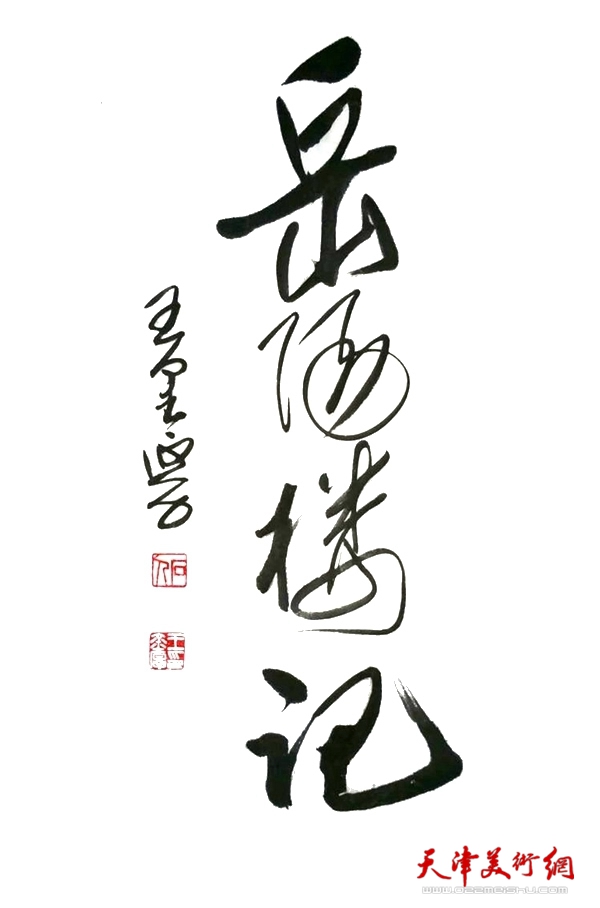 岳阳楼记
天津美術網
www.022meishu.com